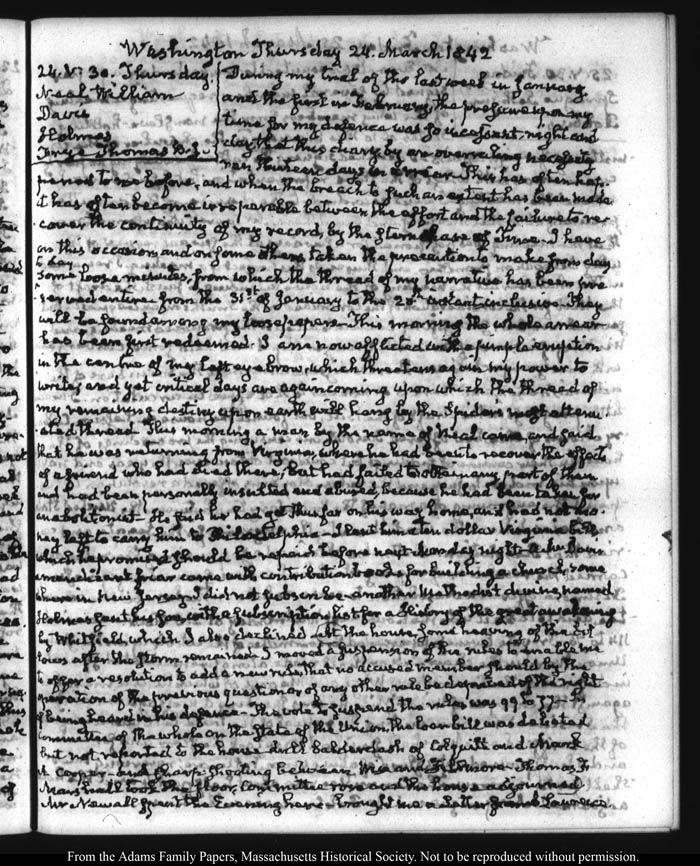 Washington Thursday 24. March 1842
24. V: 30. Thursday
Neal William
Davis
Holmes
Thomas
During my trial of the last week in January
and the first in February, the pressure upon my
time for my defence was so incessant, night and
day that this diary by an overruling necessity
ran thirteen days in arrear. This has often hap-
pened to me before, and when the breach to such an extent has been made
it has often become irreparable between the effort and the failure to re-
cover the continuity of my record, by the stern chase of Time. I have
on this occasion and on some others taken the precaution to make from day
to day
some loose minutes, from which the thread of my narrative has been pre-
served entire from the 31st of January to the 20th instant inclusive. They
will be found among my loose papers. This morning the whole arrear
has been first redeemed. I am now afflicted with a pimple eruption
in the centre of my left eye brow, which threatens again my power to
write, and yet critical days are again coming upon which the thread of
my remaining destiny upon earth will hang by the Spider's most attenu-
ated thread. This morning a man by the name of Neal came, and said
that he was returning from Virginia, where he had been to recover the effects
of a friend who had died there, but had failed to obtain any part of them
and had been personally insulted and abused, because he had been taken for
an abolitionist. He said he had got thus far on his way home, and had not mo-
ney left to carry him to Philadelphia. I lent him a ten dollar Virginia bill,
which he promised should be repaid before next Monday night. A Mr Davis
a mendicant friar came with contribution books for building a church, some
where in New Jersey. I did not subscribe. another Methodist divine, named
Holmes sent his son, with a subscription list for a History of the great awakening
by Whitfield, which I also declined. At the house, some heaving of the bil-
lows after the storm remained. I moved a suspension of the rules to enable me
to offer a resolution to add a new rule, that no accused member should by the
operation of the previous question or of any other rule be deprived of the right
of being heard in his defence. The vote to suspend the rules was 99 to 77. In
committee of the whole on the State of the Union, the loan bill was debated
but not reported to the house. dull balderdash of Colquitt and Mark
A Cooper and sharp-shooting between Wise and Fillmore. Thomas F.
Marshall took the floor, committee rose and this house adjourned
Mr Newall spent the Evening here. brought me a Letter from Lawrence.
From the Adams Family Papers, Massachusetts Historical Society. Not to be reproduced without permission.